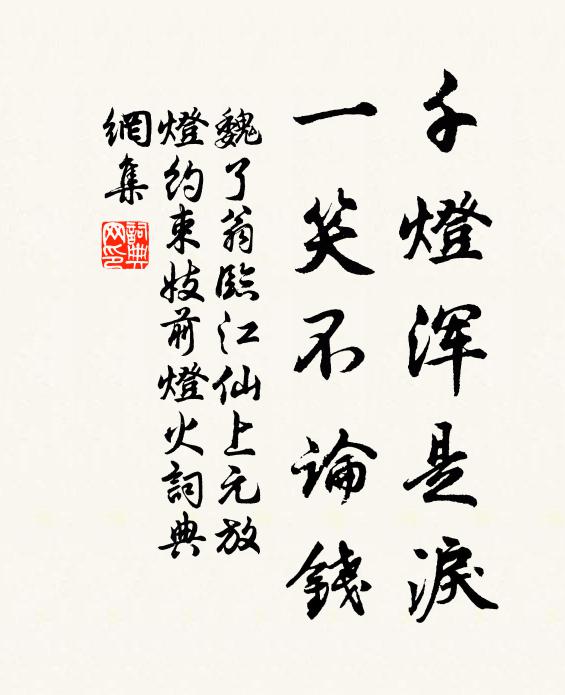 千燈浑是淚
一笑不論錢
魏了翁臨江仙上元放
燈約束妓前燈火詞典
網集
詞典
网印